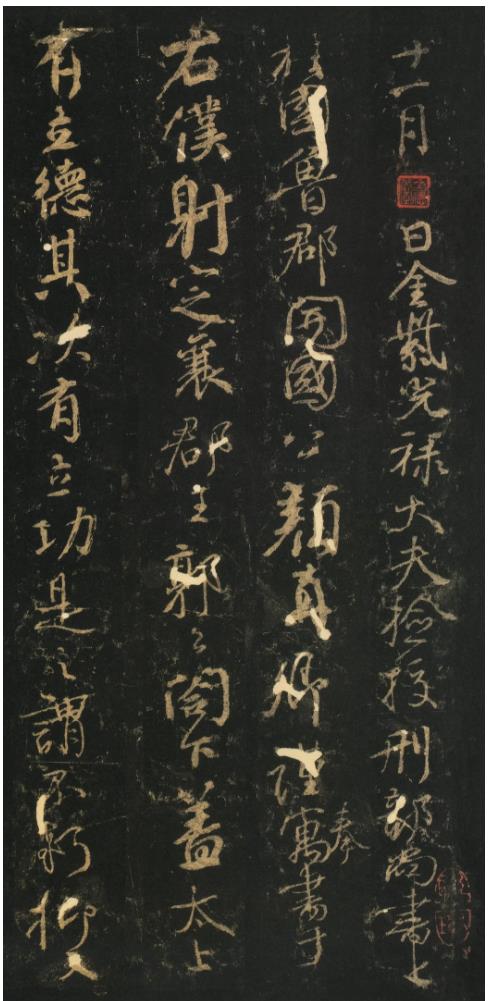 十一月日金紫光禄大夫检校刑部尚書上
柱國魯郡開國公顏真卿謹奉寓書于
右僕射定襄郡王郭公閤下蓋太上
有立德其次有立功是之謂不朽抑又